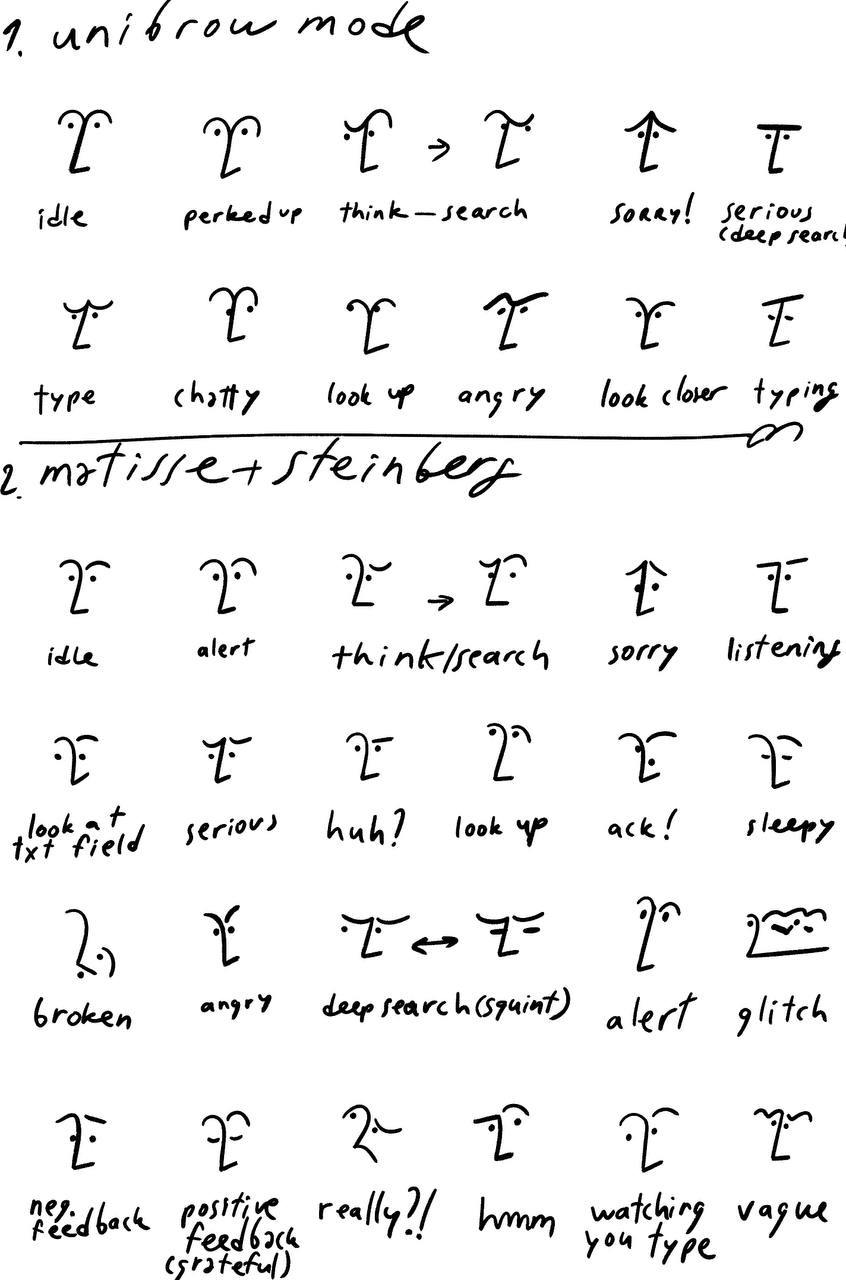 1. unibrow mode
idle perked up think — search sorry! serious
(deep search
type chatty look up angry look closer typing
2. matisse + steinberg
idle alert think/search sorry listening
look at
txt field serious huh? look up ack! sleepy
broken angry deep search (squint) alert glitch
neg.
feedback positive
feedback
(grateful) really?! hmm watching
you type vague